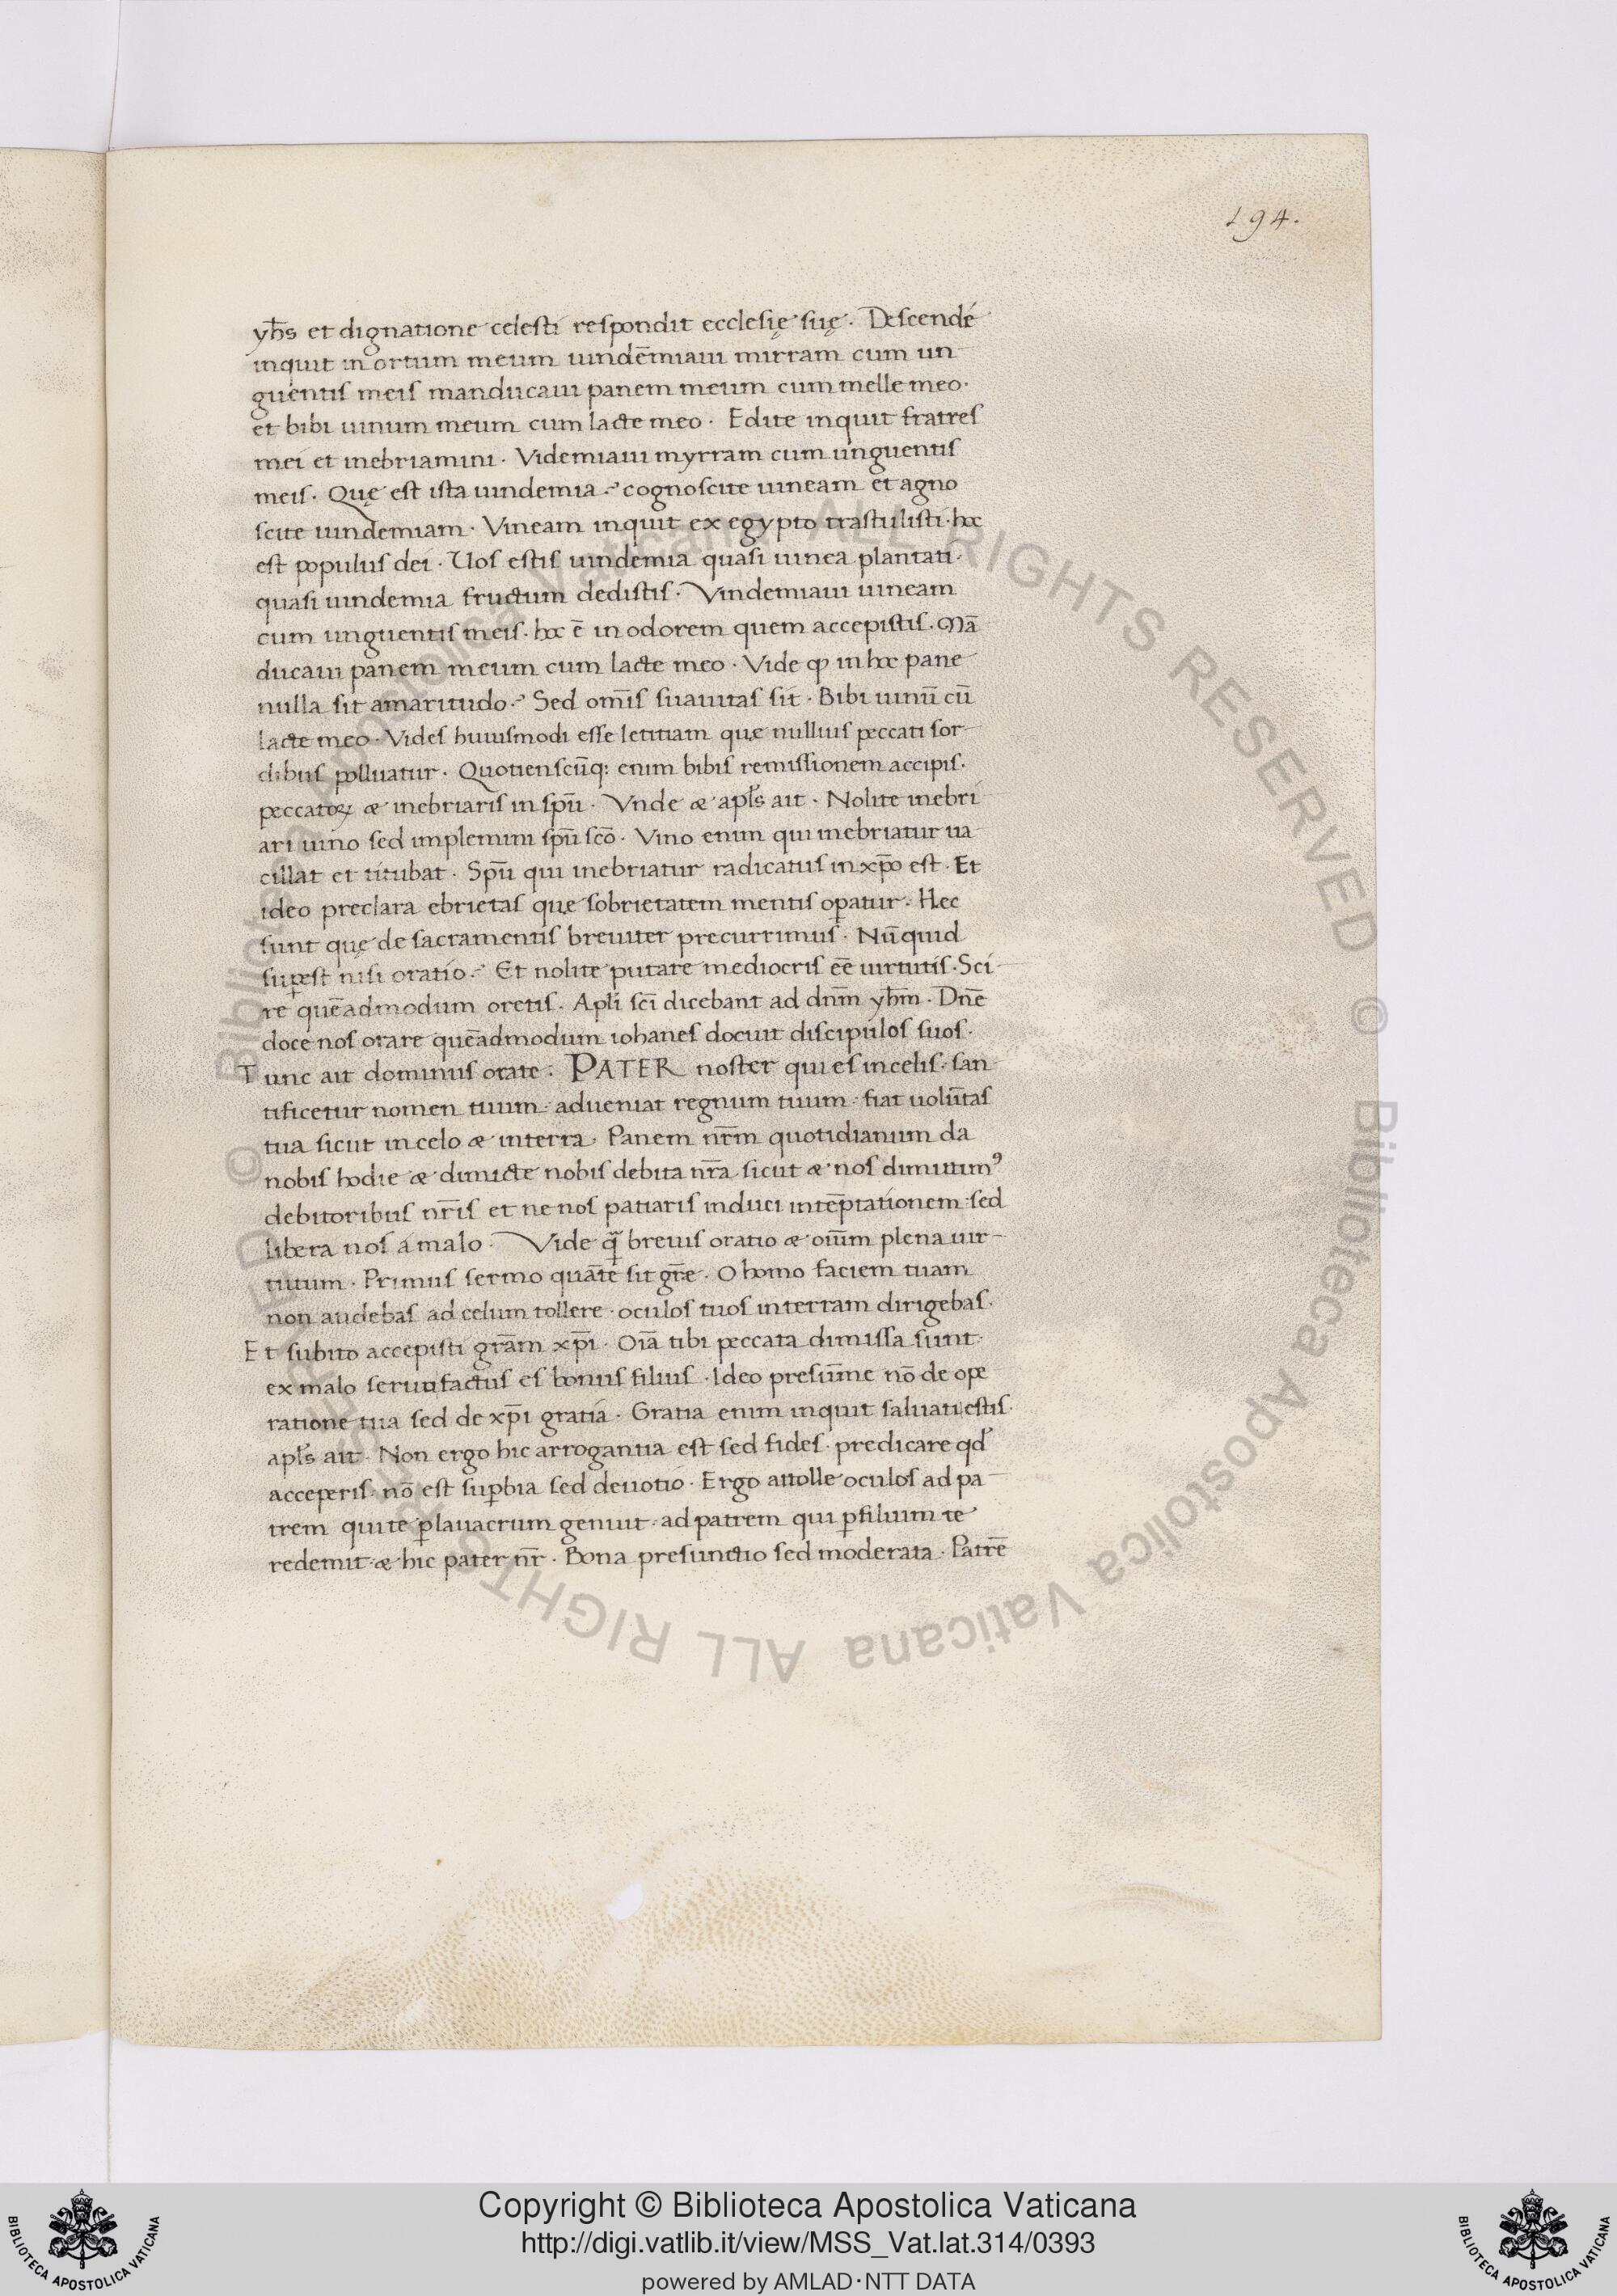 194.
yh̄s et dignatione celesti respondit ecclesię suę. Descendé
inquit in ortum meum uindēmiaui mirram cum un
guentis meis manducaui panem meum cum melle meo.
et bibi uinum meum cum lacte meo. Edite inquit fratres
mei et inebriamini. Videmiaui myrram cum unguentis
meis. Quę est ista uindemia? cognoscite uineam et agno
scite uindemiam. Vineam inquit ex egypto trastulisti. hoc
est populus dei. Uos estis uindemia quasi uinea plantati.
quasi uindemia fructum dedistis. Vindemiaui uineam
cum unguentis meis. hoc ē in odorem quem accepistis. Mā
ducaui panem meum cum lacte meo. Vide ꝙ in hoc pane
nulla sit amaritudo? Sed om̄is suauitas sit. Bibi uinū cū
lacte meo. Vides huiusmodi esse letitiam quę nullius peccati sor
dibus polluatur. Quotienscūq; enim bibis remissionem accipis.
peccatoꝝ æ inebriaris in sp̄u. Vnde æ apl̄s ait. Nolite inebri
ari uino sed implemini sp̄u scō. Vino enim qui inebriatur ua
cillat et titubat. Sp̄u qui inebriatur radicatus in xp̄o est. Et
ideo preclara ebrietas quę sobrietatem mentis oꝑatur. Hec
sunt quę de sacramentis breuiter precurrimus. Nūquid
suꝑest nisi oratio? Et nolite putare mediocris eē uirtutis. Sci
re quēadmodum oretis. Apl̄i sc̄i dicebant ad dn̄m yh̄m. Dn̄e
doce nos orare quēadmodum iohanes docuit discipulos suos.
Tunc ait dominus orate. PATER noster qui es in celis. san
tificetur nomen tuum. adueniat regnum tuum. fiat uolūtas
tua sicut in celo æ in terra. Panem nr̄m quotidianum da
nobis hodie æ dimicte nobis debita nr̄a sicut æ nos dimittimꝰ
debitoribus nr̄is et ne nos patiaris induci in tēptationem. sed
libera nos a malo. Vide q̄ breuis oratio æ oiūm plena uir
tutum. Primus sermo quāte sit gr̄e. O homo faciem tuam
non audebas ad celum tollere. oculos tuos in terram dirigebas.
Et subito accepisti gr̄am xp̄i. Oīa tibi peccata dimissa sunt.
ex malo seruo factus es bonus filius. Ideo presūme nō de ope
ratione tua sed de xp̄i gratia. Gratia enim inquit saluati estis.
apl̄s ait. Non ergo hic arrogantia est sed fides. predicare qd̓
acceperis. nō est suꝑbia sed deuotio. Ergo attolle oculos ad pa
trem qui te ꝑ lauacrum genuit. ad patrem qui ꝑ filium te
redemit. æ hic pater nr̄. Bona presunctio sed moderata. Patrē
Copyright © Biblioteca Apostolica Vaticana
http://digi.vatlib.it/view/MSS_Vat.lat.314/0393
powered by AMLAD·NTT DATA